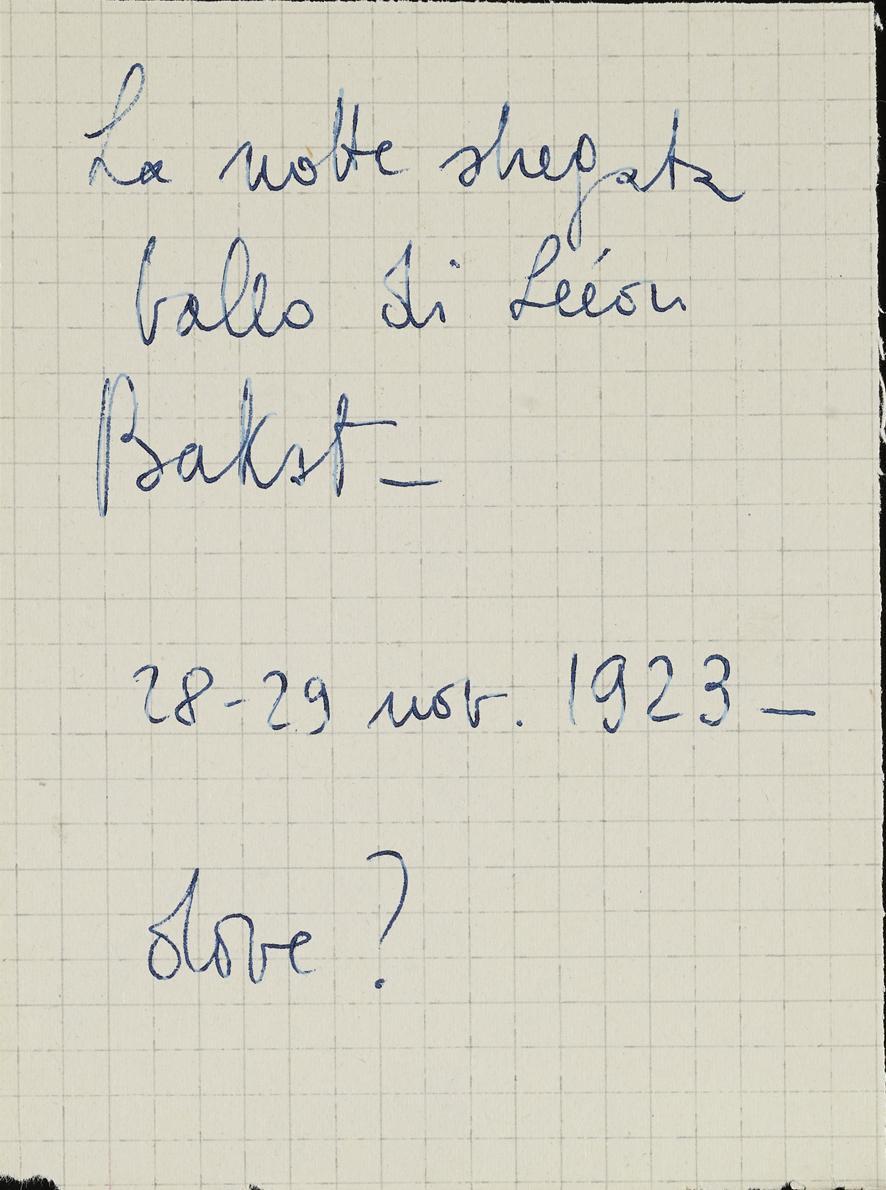 La notte stregata
ballo di Léon
Bakst –
28-29 nov. 1923 –
dove ?